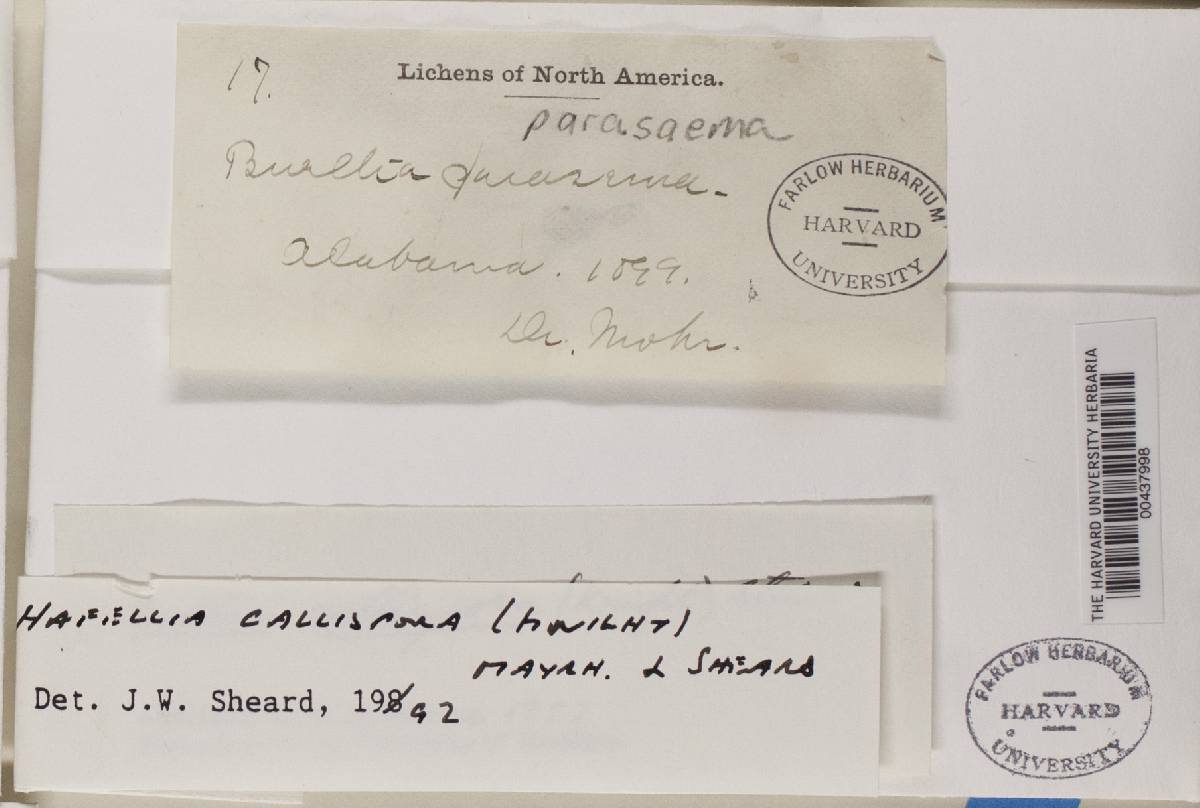 17.
Lichens of North America.
parasaema
Buellia parasema.
Alabama. 1899.
Dr. Mohr.
FARLOW HERBARIUM
HARVARD
UNIVERSITY
THE HARVARD UNIVERSITY HERBARIA
00437998
HAFELLIA CALLISPORA (KNIGHT)
MAYRH. & SHEARD
Det. J.W. Sheard, 1992
FARLOW HERBARIUM
HARVARD
UNIVERSITY